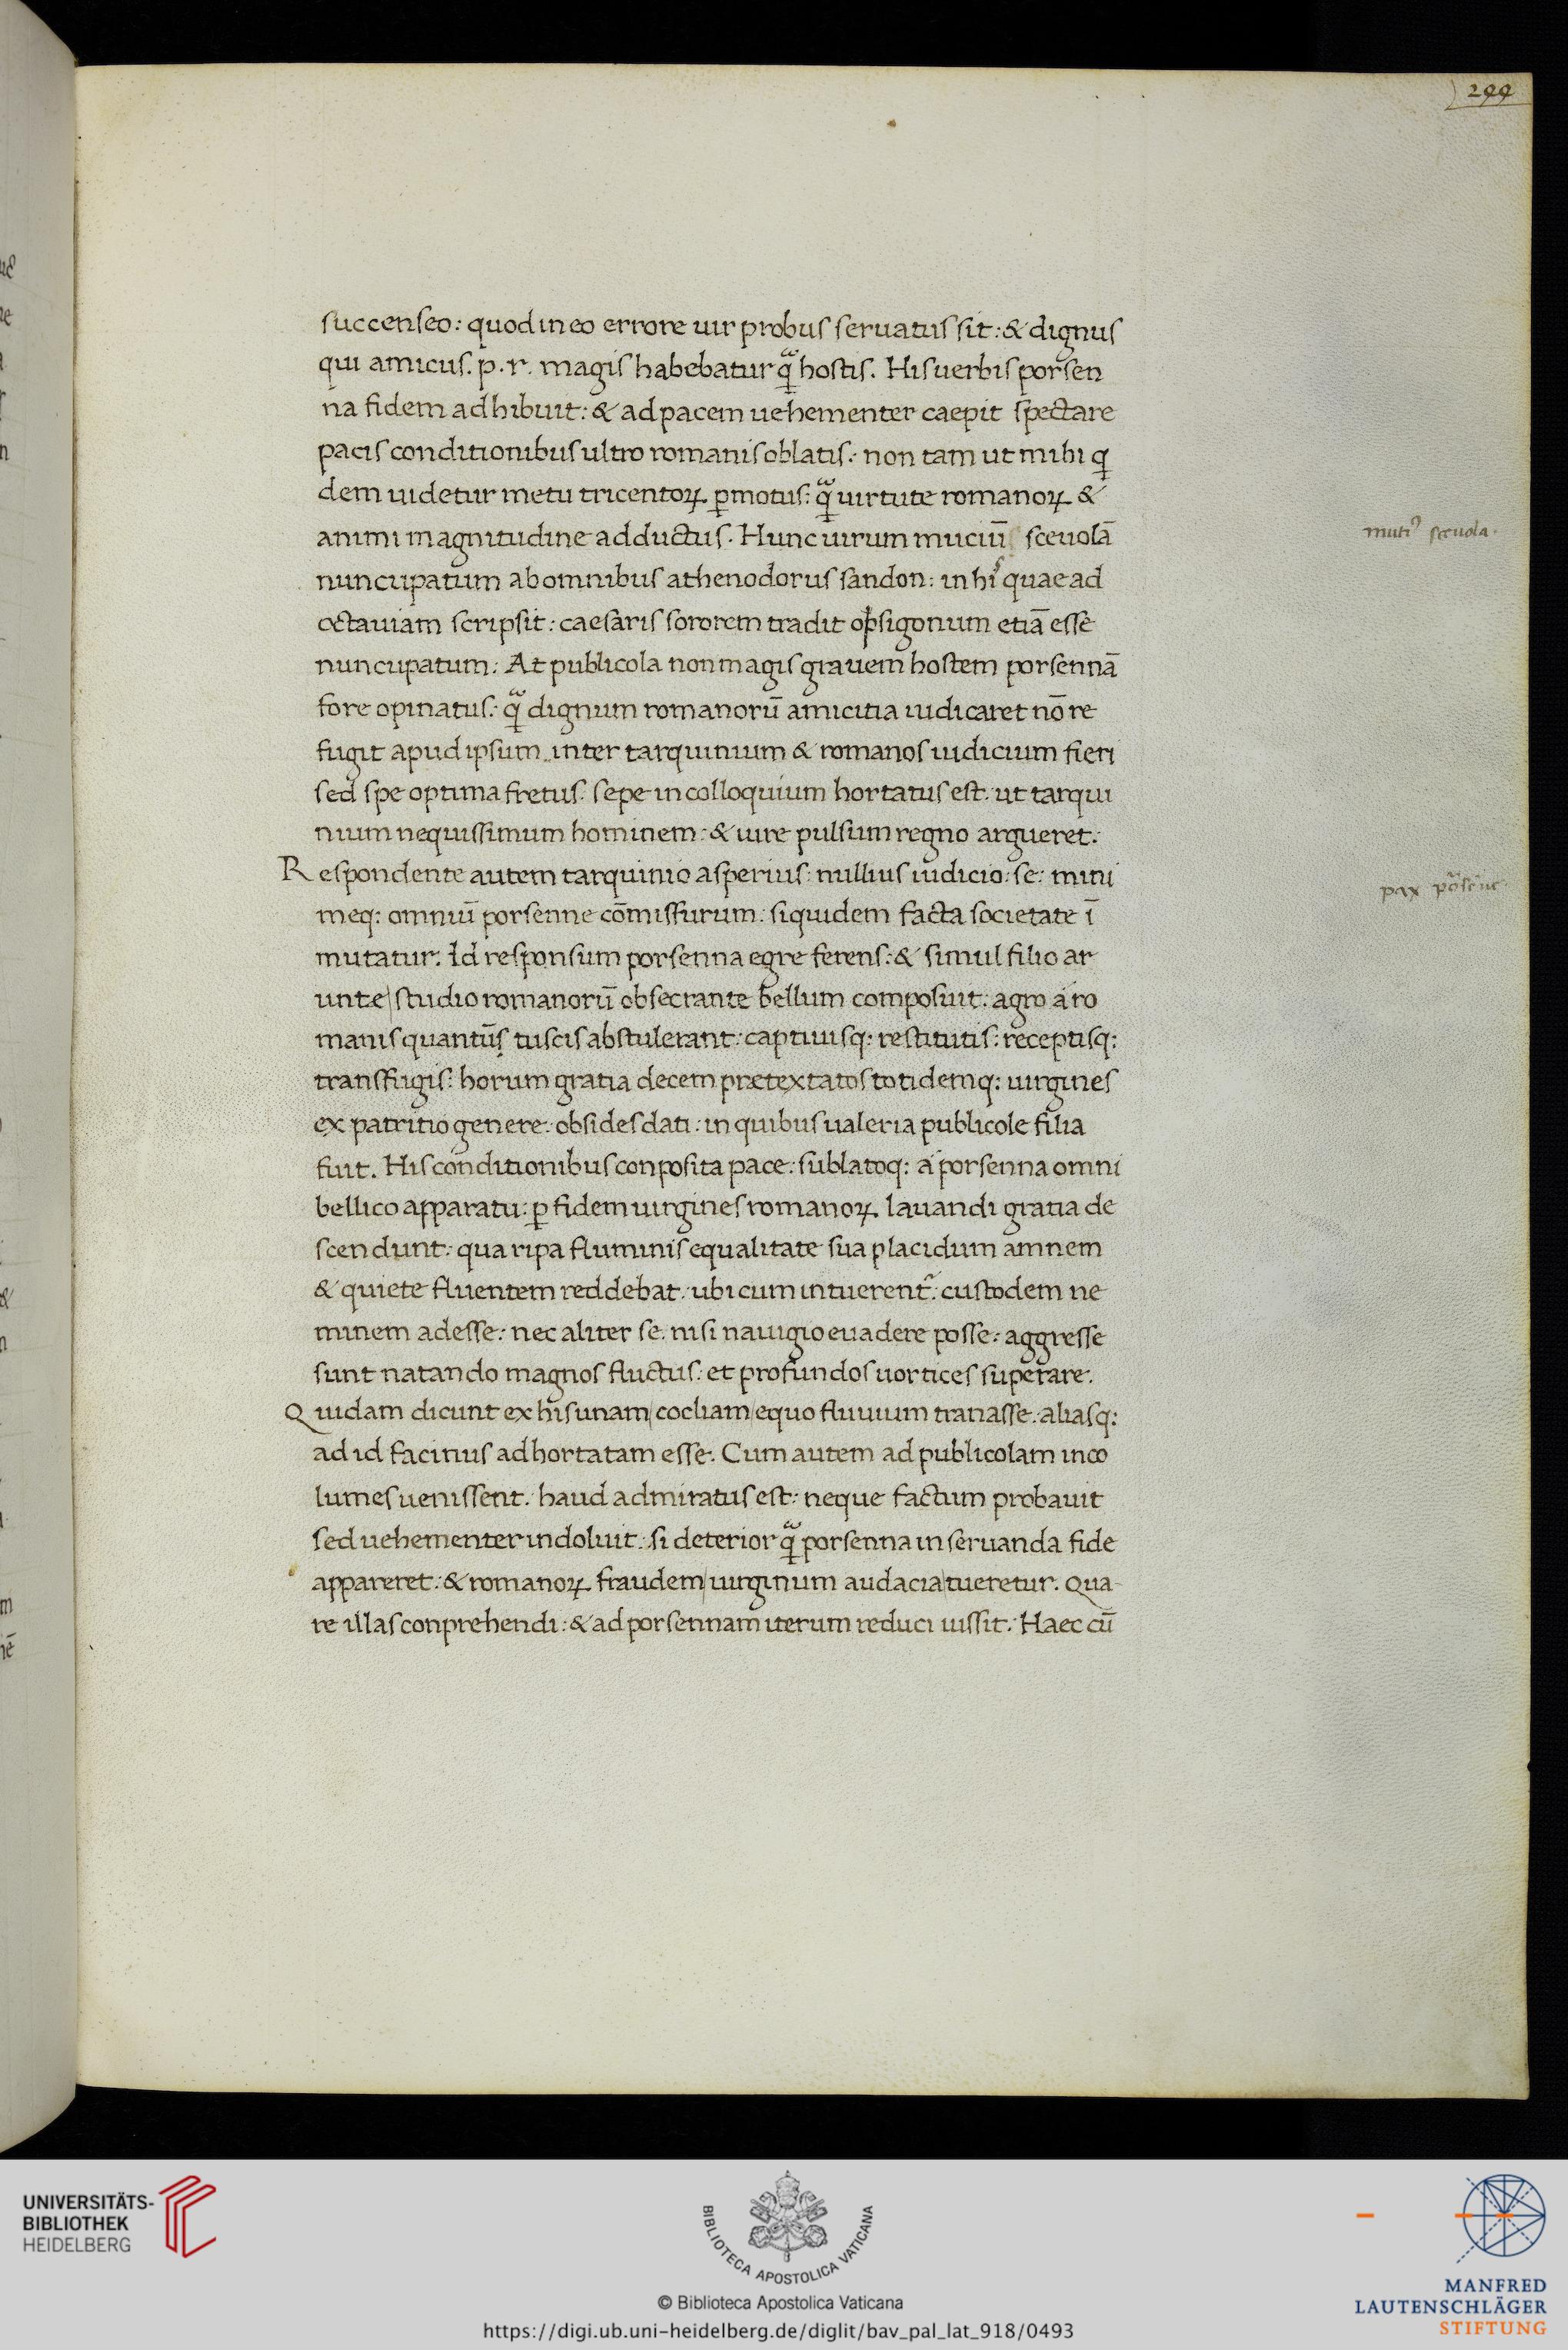 244
succenseo: quod in eo errore uir probus seruatus sit: & dignus
qui amicus. p. r. magis habebatur quã hostis. His uerbis porsen
na fidem adhibuit: & ad pacem uehementer caepit spectare
pacis conditionibus ultro romanis oblatis: non tam ut mihi q
dem uidetur metu tricentoꝝ ꝑmotus: quã uirtute romanoꝝ &
animi magnitudine adductus. Hunc uirum muciũ sceuolã
nuncupatum ab omnibus athenodorus sandon: in his quae ad
octauiam scripsit: caesaris sororem tradit opsigonum etiã esse
nuncupatum: At publicola non magis grauem hostem porsennã
fore opinatus: quã dignum romanorũ amicitia iudicaret nõ re
fugit apud ipsum inter tarquinium & romanos iudicium fieri
sed spe optima fretus. sepe in colloquium hortatus est. ut tarqui
nium nequissimum hominem: & iure pulsum regno argueret:
Respondente autem tarquinio asperius: nullius iudicio: se: mini
meq: omniũ porsenne cõmissurum: siquidem facta societate ĩ
mutatur. Id responsum porsenna egre ferens: & simul filio ar
unte studio romanorũ obsecrante bellum composuit: agro a ro
manis quantũs tuscis abstulerant: captiuisq: restitutis: receptisq:
transfugis: horum gratia decem pretextatos totidemq: uirgines
ex patritio genere: obsides dati: in quibus ualeria publicole filia
fuit. His conditionibus conposita pace: sublatoq: a porsenna omni
bellico apparatu: ꝑ fidem uirgines romanoꝝ lauandi gratia de
scendunt: qua ripa fluminis equalitate sua placidum amnem
& quiete fluentem reddebat. ubi cum intuerent᷑: custodem ne
minem adesse: nec aliter se. nisi nauigio euadere posse: aggresse
sunt natando magnos fluctus: et profundos uortices superare.
Quidam dicunt ex his unam cocliam equo fluuium tranasse. aliasq:
ad id facinus adhortatam esse. Cum autem ad publicolam inco
lumes uenissent. haud admiratus est: neque factum probauit
sed uehementer indoluit: si deterior quã porsenna in seruanda fide
appareret: & romanoꝝ fraudem uirginum audacia tueretur. Qua
re illas conprehendi: & ad porsennam iterum reduci iussit. Haec cũ
mutiꝰ sceuola.
pax
UNIVERSITÄTS-
BIBLIOTHEK
HEIDELBERG
BIBLIOTECA APOSTOLICA VATICANA
© Biblioteca Apostolica Vaticana
https://digi.ub.uni-heidelberg.de/diglit/bav_pal_lat_918/0493
MANFRED
LAUTENSCHLÄGER
STIFTUNG